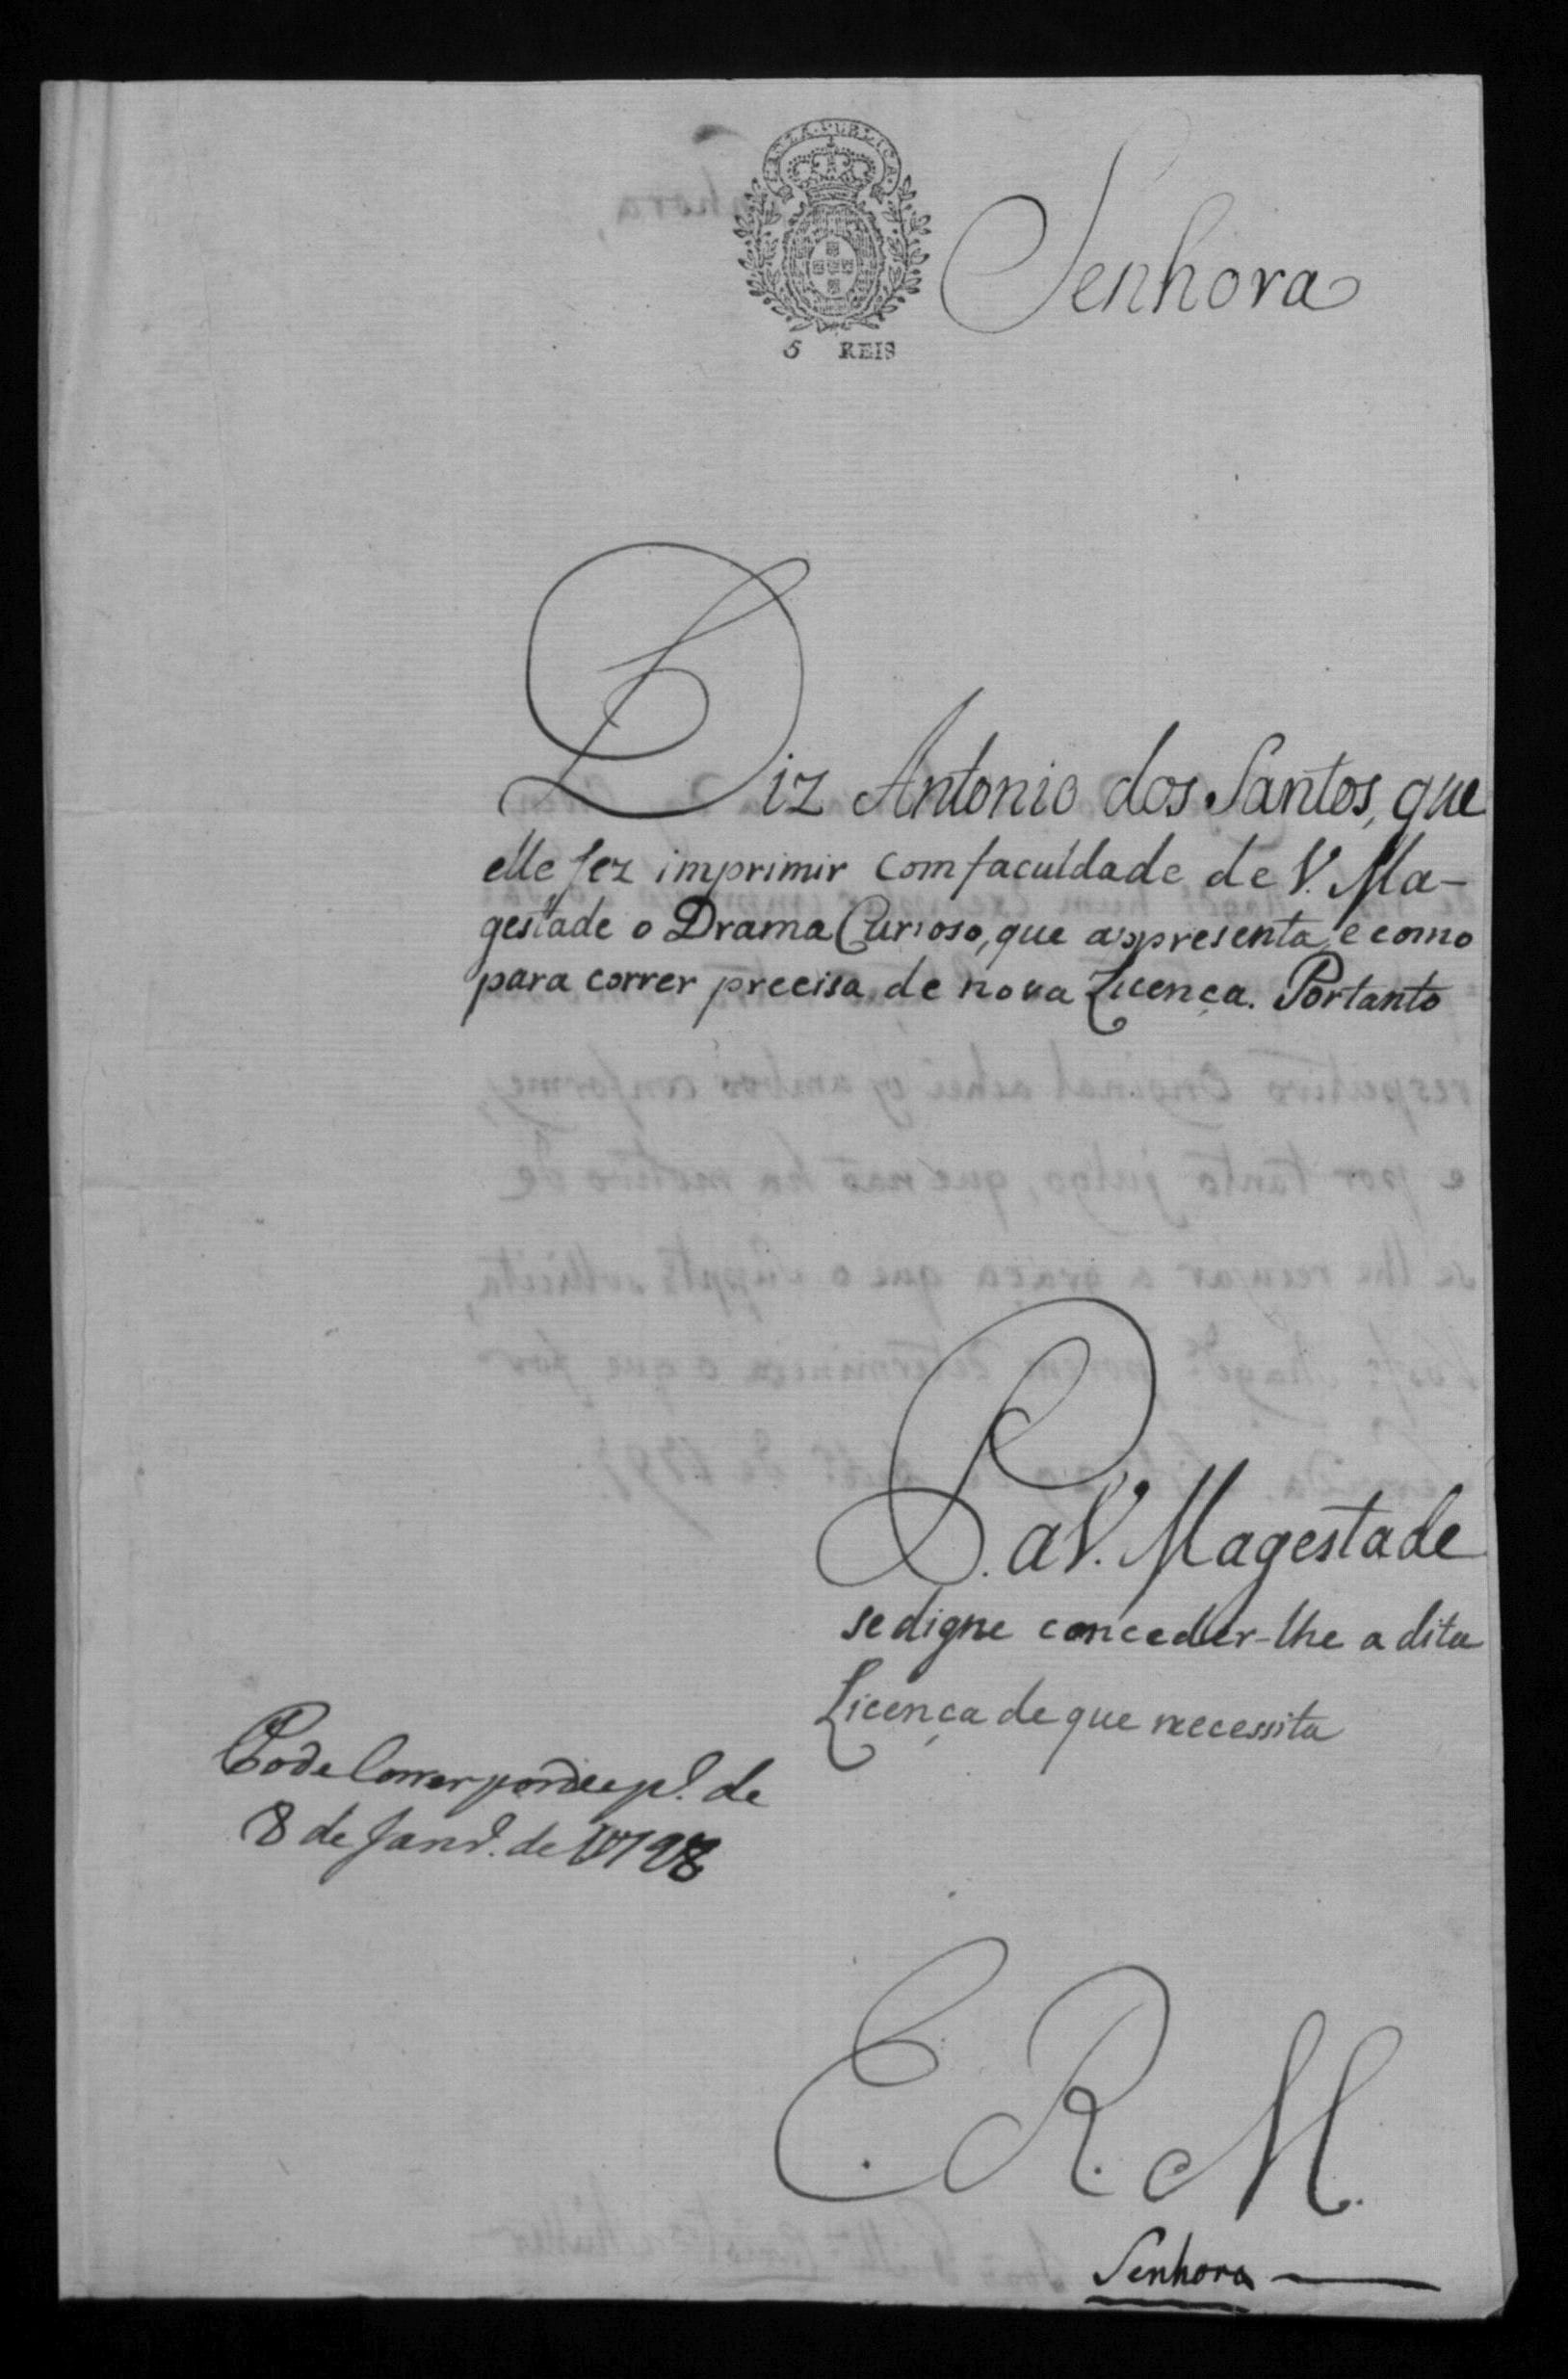 CAUZA PUBLICA
5 REIS
Senhora
Diz Antonio dos Santos, que
elle fez imprimir com faculdade de V. Ma-
gestade o Drama Curioso, que appresenta, e como
para correr precisa de nova Licença. Portanto
P. a V. Magestade
se digne conceder-lhe a dita
Licença de que necessita
Pode Correr por desp.º de
8 de Janr.º de 1798
E. R. M.
Senhora